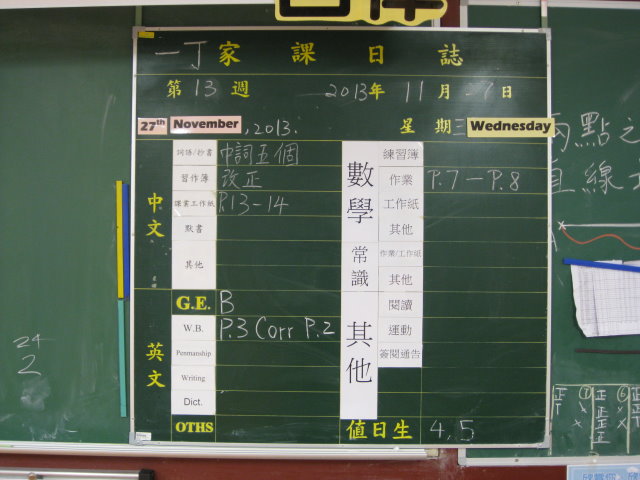 一丁家課日誌
第13週 2013年11月27日
27th November, 2013. 星期三 Wednesday
中文
詞語/抄書 中詞五個
習作簿 改正
課業工作紙 P.13-14
默書
其他
英文
G.E. B
W.B. P.3 Corr P.2
Penmanship
Writing
Dict.
OTHS
數學
練習簿
作業 P.7-P.8
工作紙
其他
常識
作業/工作紙
其他
其他
閱讀
運動
簽閱通告
值日生 4, 5
點之
直線
A
24
2